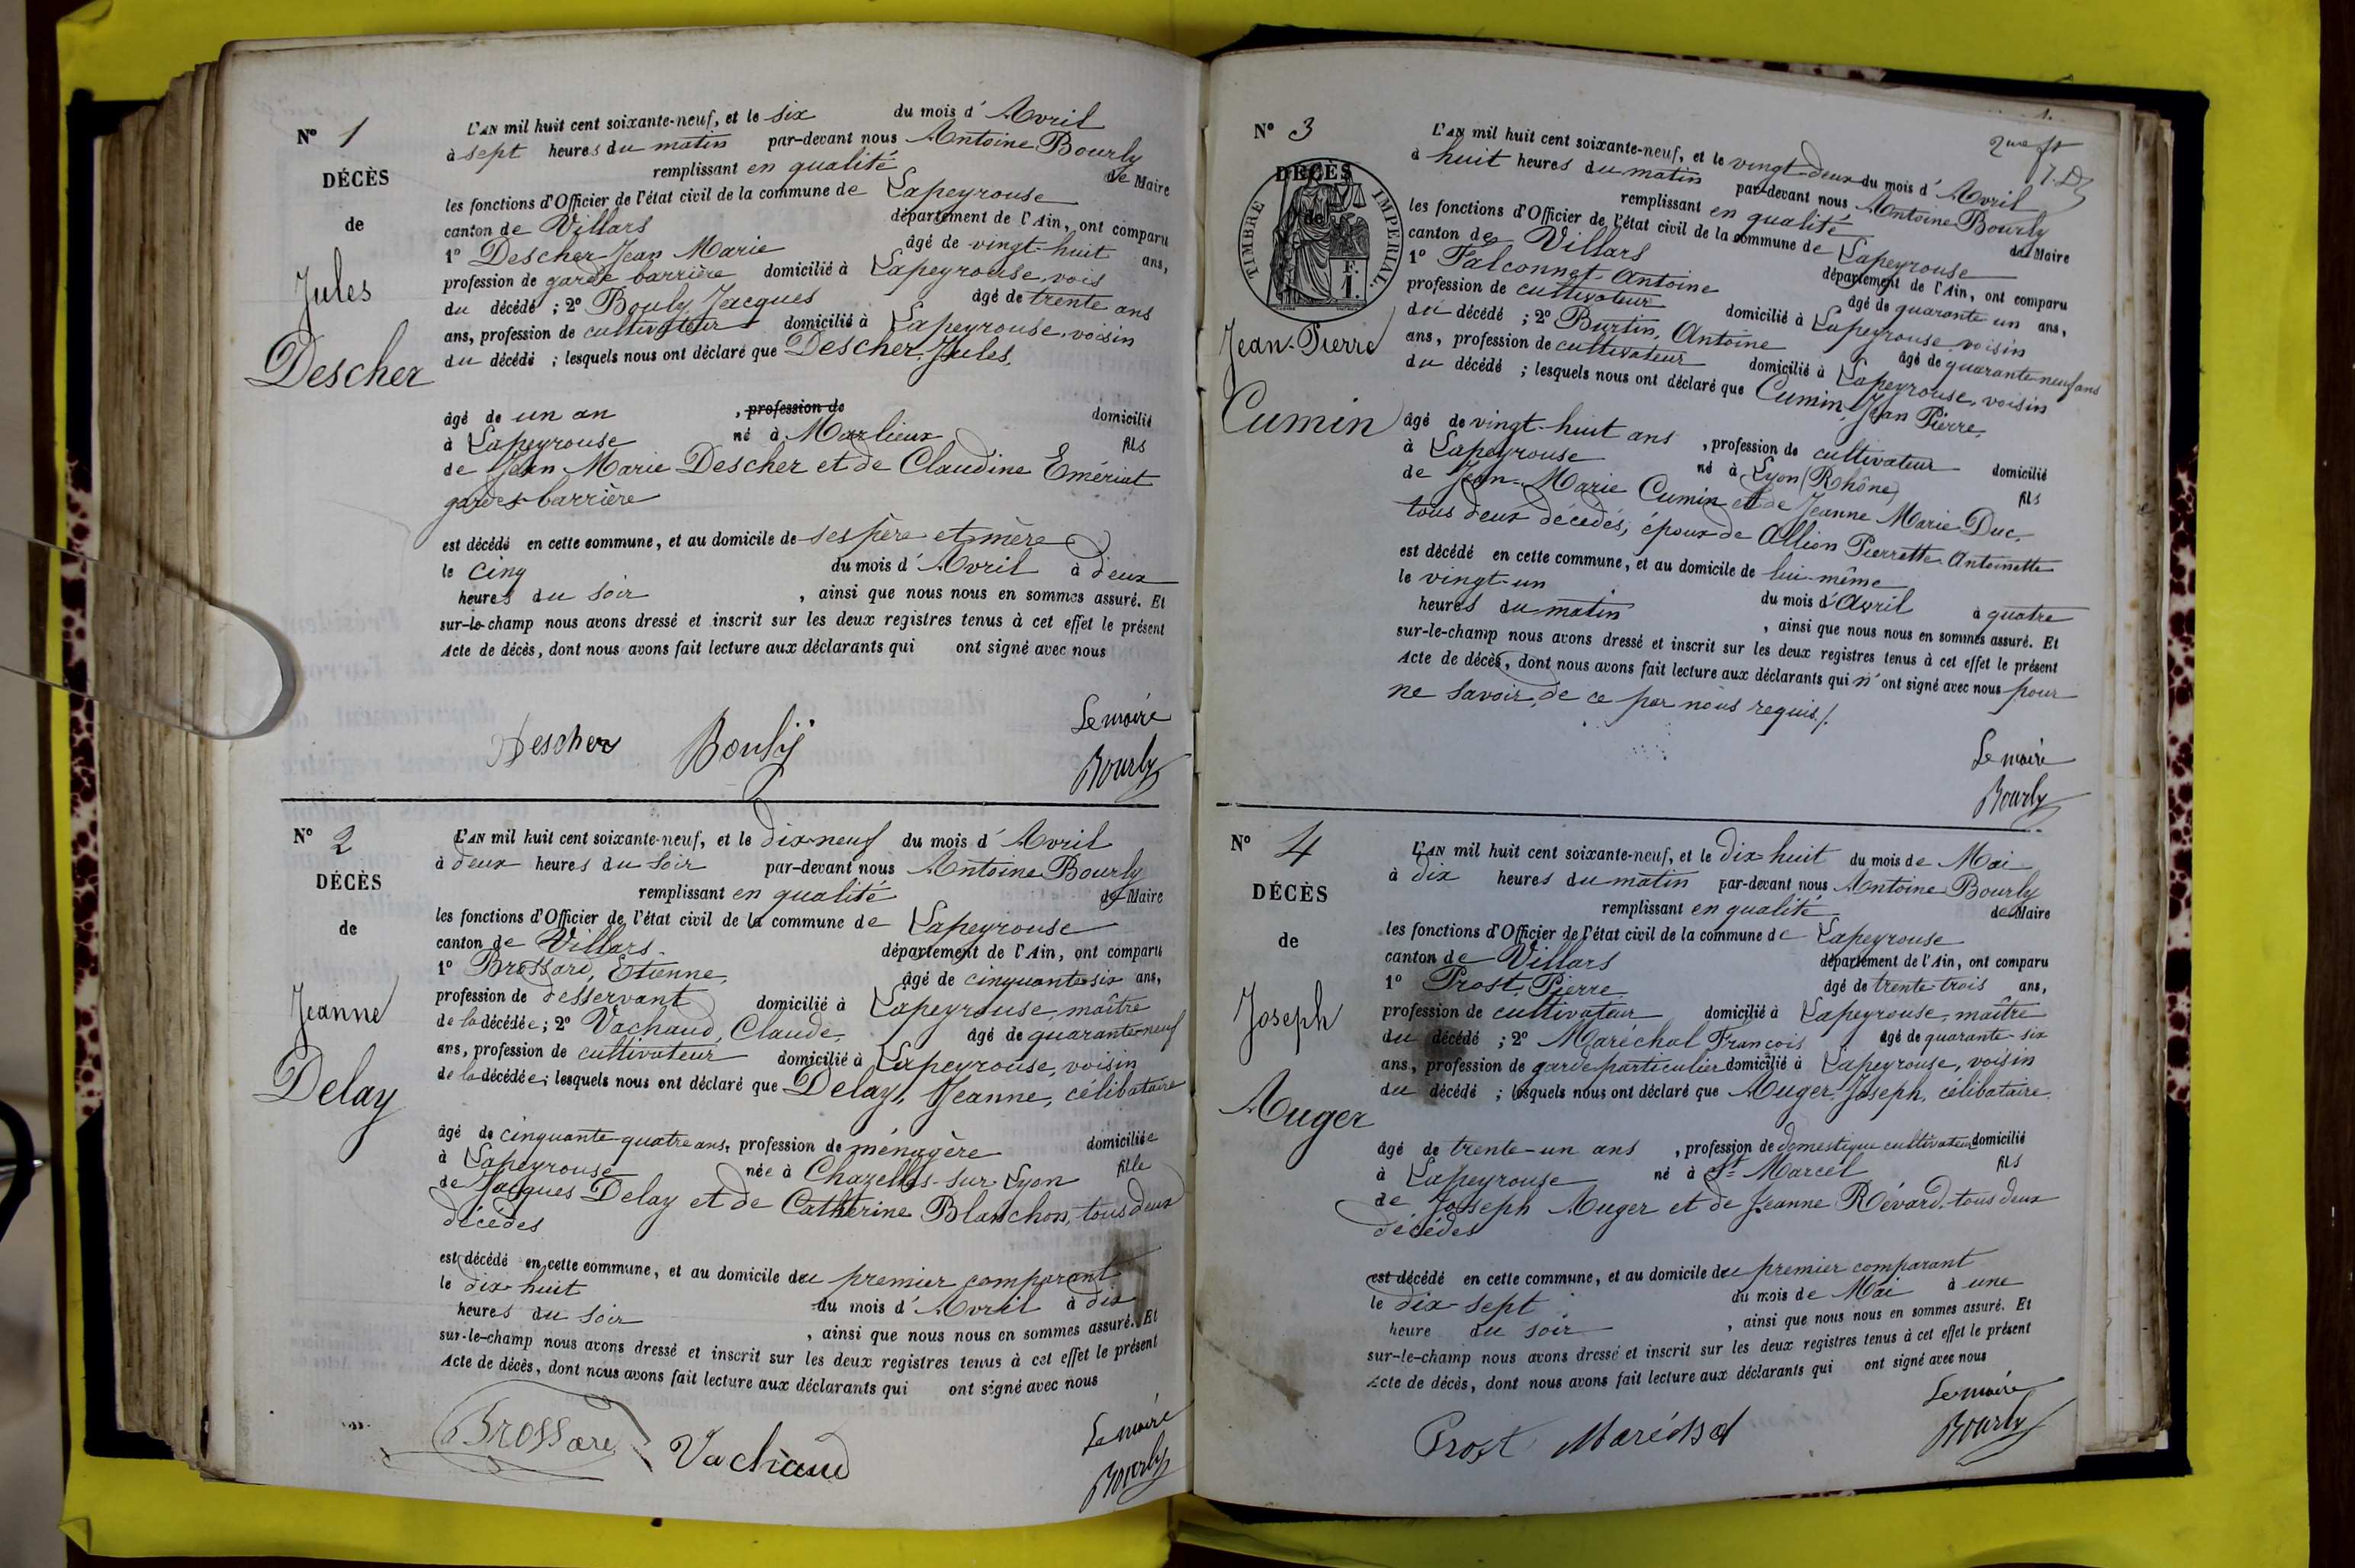 N° 1
DÉCÈS
de
Jules
Descher
L'AN mil huit cent soixante-neuf, et le six du mois d'Avril
à sept heures du matin par-devant nous Antoine Bourly
remplissant en qualité de Maire
les fonctions d'Officier de l'état civil de la commune de Lapeyrouse
canton de Villars département de l'Ain, ont comparu
1° Descher Jean Marie âgé de vingt-huit ans,
profession de garde barrière domicilié à Lapeyrouse, vois
du décédé ; 2° Bouly Jacques âgé de trente ans
ans, profession de cultivateur domicilié à Lapeyrouse, voisin
du décédé ; lesquels nous ont déclaré que Descher, Jules,
âgé de un an , profession de domicilié
à Lapeyrouse né à Marlieux fils
de Jean Marie Descher et de Claudine Emériat
gardes-barrière
est décédé en cette commune, et au domicile de ses père et mère
le cinq du mois d'Avril à deux
heures du soir , ainsi que nous nous en sommes assuré. Et
sur-le-champ nous avons dressé et inscrit sur les deux registres tenus à cet effet le présent
Acte de décès, dont nous avons fait lecture aux déclarants qui ont signé avec nous
Descher Bouly Le maire
Bourly
N° 2
DÉCÈS
de
Jeanne
Delay
L'AN mil huit cent soixante-neuf, et le dix-neuf du mois d'Avril
à deux heures du soir par-devant nous Antoine Bourly
remplissant en qualité de Maire
les fonctions d'Officier de l'état civil de la commune de Lapeyrouse
canton de Villars département de l'Ain, ont comparu
1° Brossard, Etienne, âgé de cinquante-six ans,
profession de desservant domicilié à Lapeyrouse, maître
de la décédée ; 2° Vachaud, Claude, âgé de quarante-neuf
ans, profession de cultivateur domicilié à Lapeyrouse, voisin
de la décédée ; lesquels nous ont déclaré que Delay, Jeanne, célibataire
âgé de cinquante-quatre ans, profession de ménagère domiciliée
à Lapeyrouse née à Chazelles-sur-Lyon fille
de Jacques Delay et de Catherine Blanchon, tous deux
décédés
est décédé en cette commune, et au domicile du premier comparant
le dix-huit du mois d'Avril à dix
heures du soir , ainsi que nous nous en sommes assuré. Et
sur-le-champ nous avons dressé et inscrit sur les deux registres tenus à cet effet le présent
Acte de décès, dont nous avons fait lecture aux déclarants qui ont signé avec nous
Brossard Vachaud Le maire
Bourly
1.
N° 3
DÉCÈS
de
TIMBRE IMPERIAL.
F.
1.
Jean-Pierre
Cumin
L'AN mil huit cent soixante-neuf, et le vingt-deux du mois d'Avril
à huit heures du matin par-devant nous Antoine Bourly
remplissant en qualité de Maire
les fonctions d'Officier de l'état civil de la commune de Lapeyrouse
canton de Villars département de l'Ain, ont comparu
1° Falconnet, Antoine âgé de quarante un ans,
profession de cultivateur domicilié à Lapeyrouse voisin
du décédé ; 2° Burtin, Antoine âgé de quarante-neuf ans
ans, profession de cultivateur domicilié à Lapeyrouse, voisin
du décédé ; lesquels nous ont déclaré que Cumin, Jean Pierre,
âgé de vingt-huit ans , profession de cultivateur domicilié
à Lapeyrouse né à Lyon (Rhône) fils
de Jean-Marie Cumin et de Jeanne Marie Duc,
tous deux décédés, époux de Allion Pierrette Antoinette
est décédé en cette commune, et au domicile de lui-même
le vingt-un du mois d'Avril à quatre
heures du matin , ainsi que nous nous en sommes assuré. Et
sur-le-champ nous avons dressé et inscrit sur les deux registres tenus à cet effet le présent
Acte de décès, dont nous avons fait lecture aux déclarants qui n'ont signé avec nous pour
ne savoir, de ce par nous requis./.
Le maire
Bourly
N° 4
DÉCÈS
de
Joseph
Auger
L'AN mil huit cent soixante-neuf, et le dix-huit du mois de Mai
à dix heures du matin par-devant nous Antoine Bourly
remplissant en qualité de Maire
les fonctions d'Officier de l'état civil de la commune de Lapeyrouse
canton de Villars département de l'Ain, ont comparu
1° Prost, Pierre âgé de trente-trois ans,
profession de cultivateur domicilié à Lapeyrouse, maître
du décédé ; 2° Maréchal François âgé de quarante-six
ans, profession de garde particulier domicilié à Lapeyrouse, voisin
du décédé ; lesquels nous ont déclaré que Auger, Joseph, célibataire,
âgé de trente-un ans , profession de domestique cultivateur domicilié
à Lapeyrouse né à St Marcel fils
de Joseph Auger et de Jeanne Révard, tous deux
décédés
est décédé en cette commune, et au domicile du premier comparant
le dix-sept du mois de Mai à une
heure du soir , ainsi que nous nous en sommes assuré. Et
sur-le-champ nous avons dressé et inscrit sur les deux registres tenus à cet effet le présent
Acte de décès, dont nous avons fait lecture aux déclarants qui ont signé avec nous
Prost Maréchal Le maire
Bourly